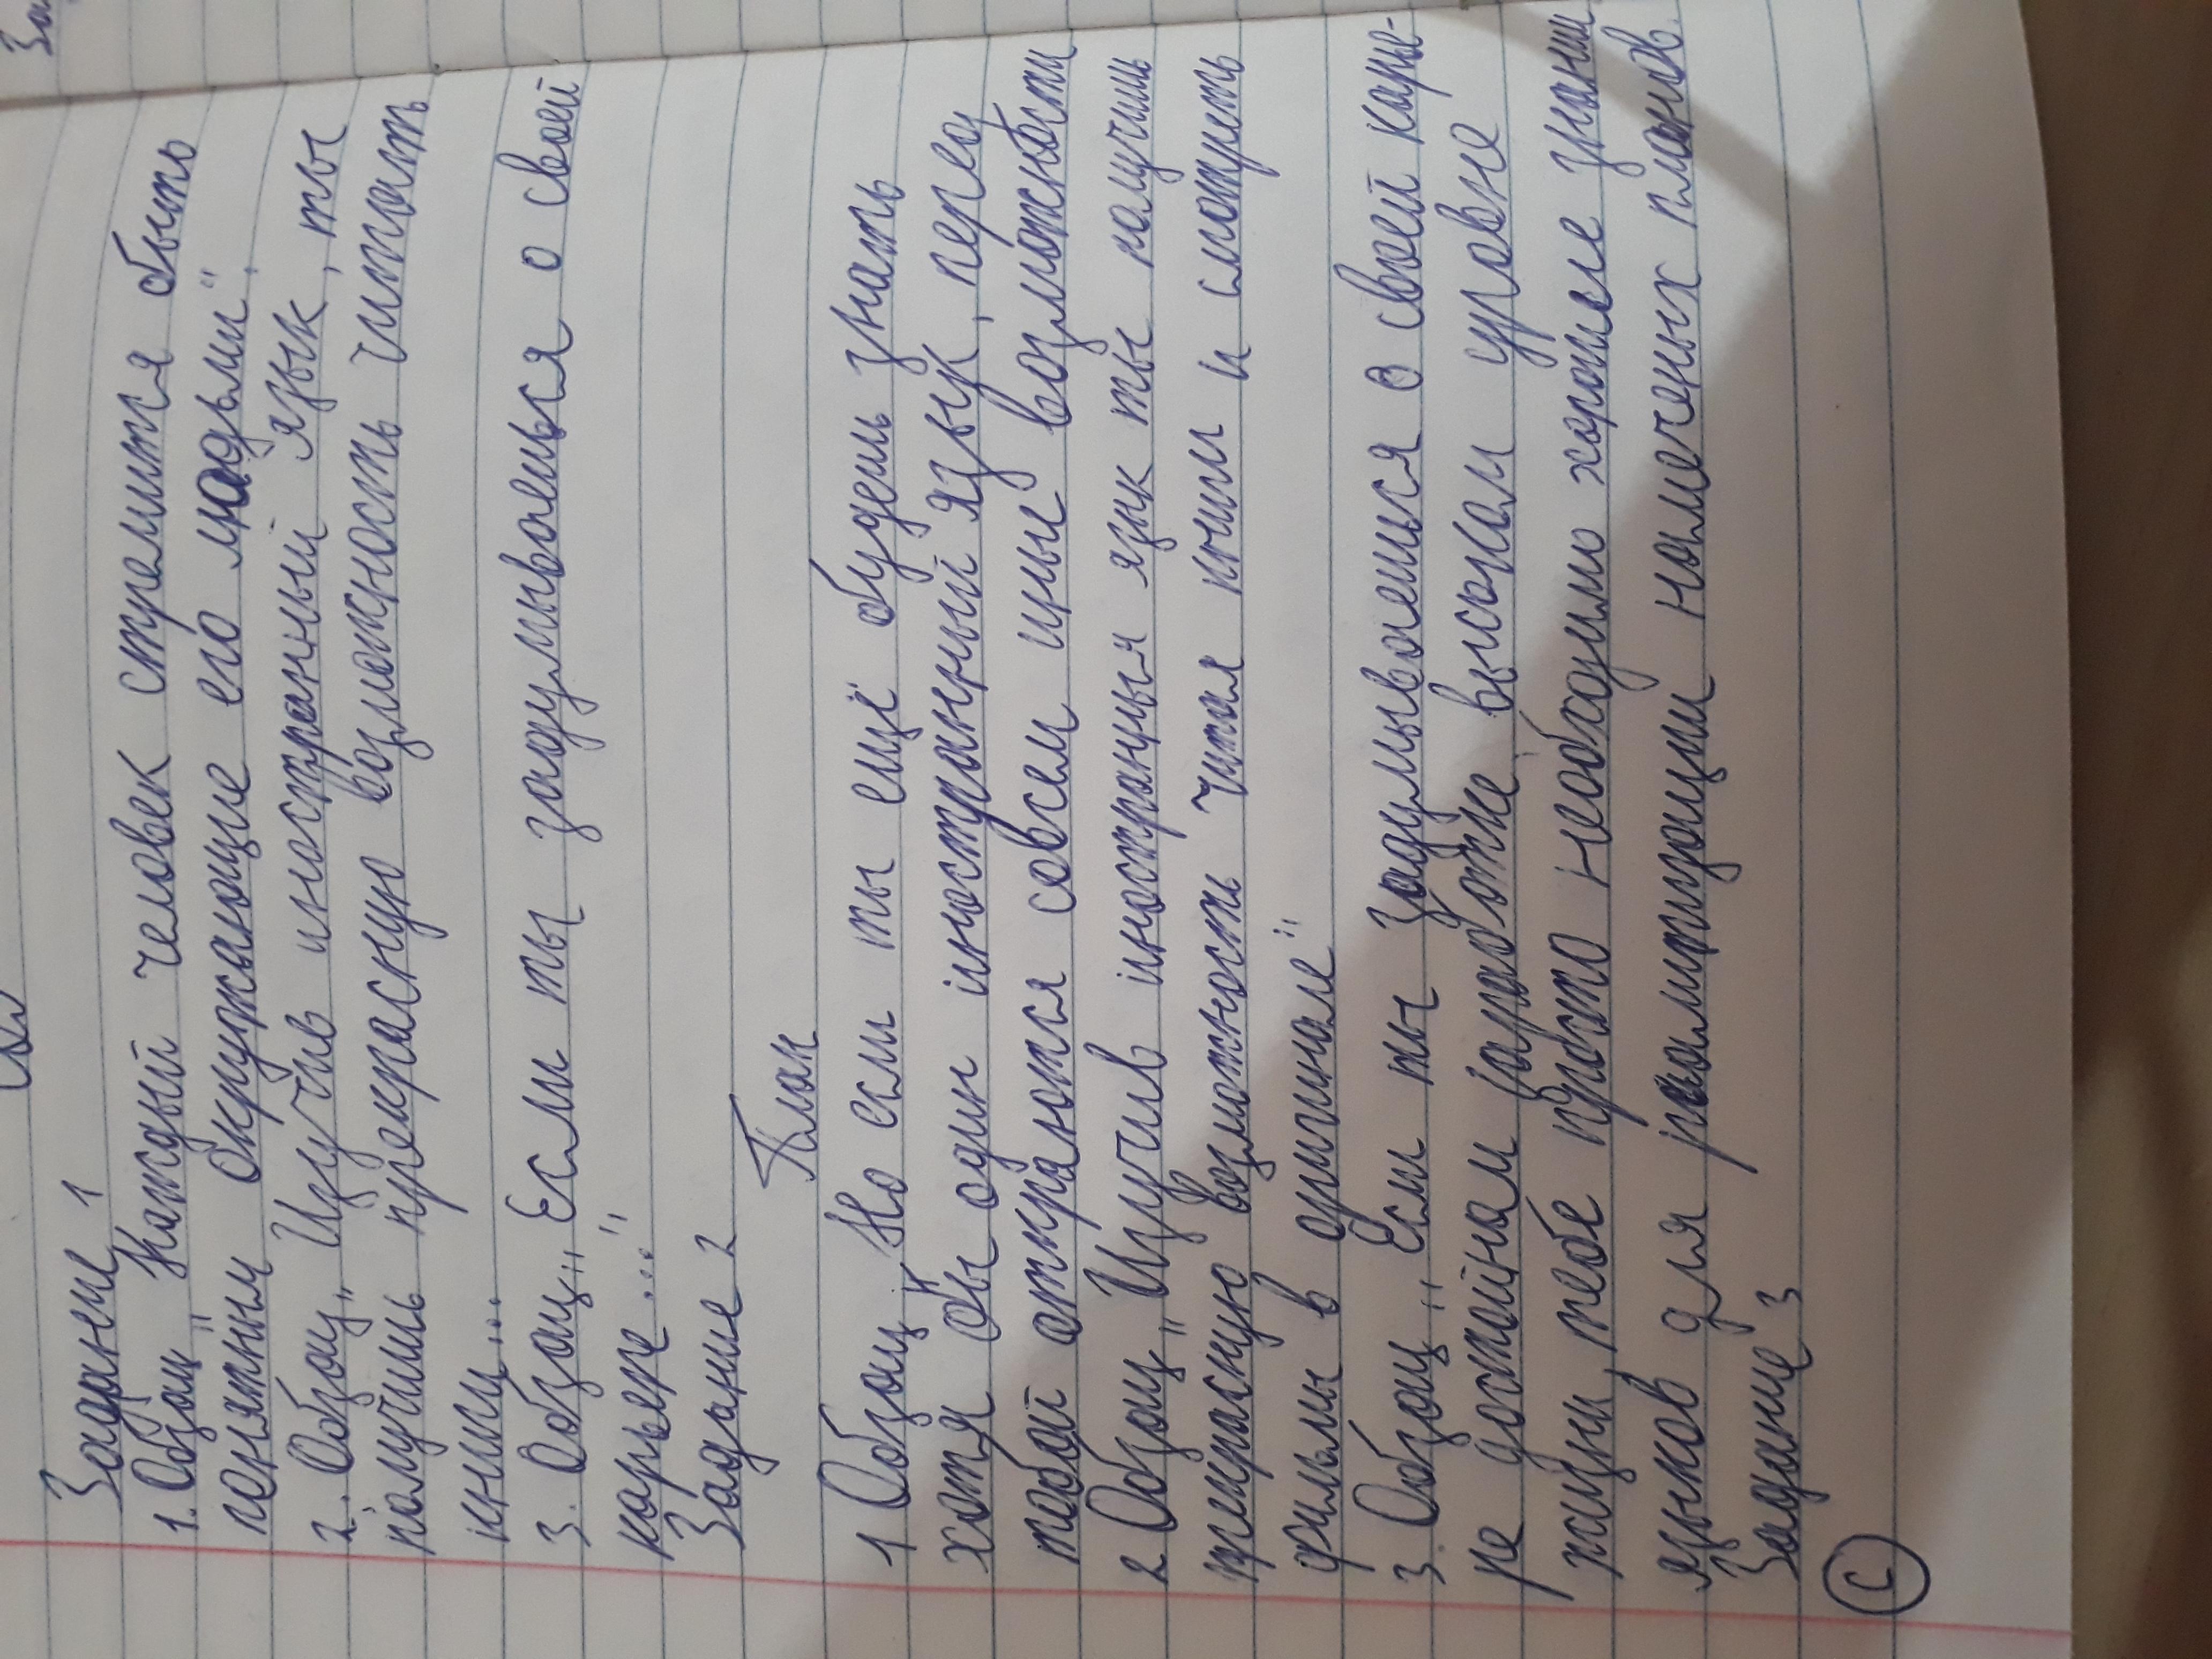 Задание 1
1. Обзац " Каждый человек стремится быть
понятным окружающие его людьми".
2. Обзац " Изучив иностранный язык, ты
получишь прекрасную возможность читать
книги...
3. Обзац " Если ты задумываешься о своей
карьере..."
Задание 2
План
1 Обзац " Но если ты ещё будешь знать
хотя бы один иностранный язык, перед
тобой откраются совсем иные возможности
2 Обзац " Изучив иностранныя язык ты получишь
прекрасную возможность читая книги и смотреть
фильмы в оригинале"
3. Обзац " Если ты задумываешься о своей карье-
ре достойном заработке, высоком уровне
жизни, тебе просто необходимо хорошее знании
языков для реалитзации намеченых планов.
Задание 3
С